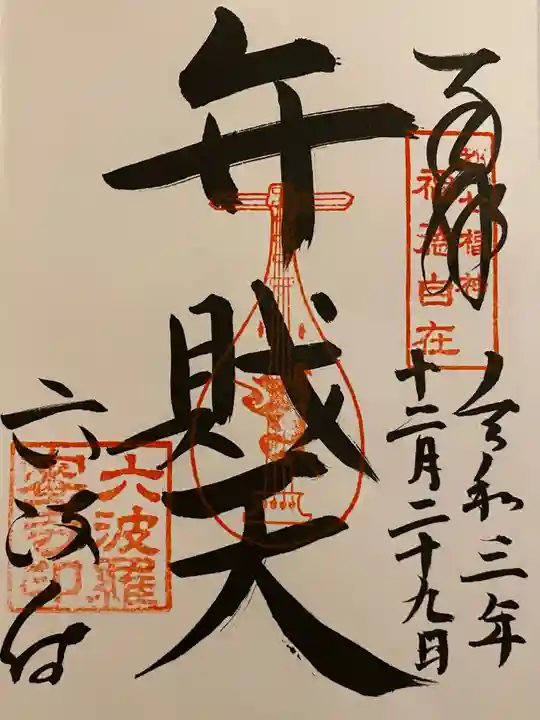 奉拝
都七福神
福徳自在
令和三年
十二月二十九日
弁財天
六波羅
蜜寺印